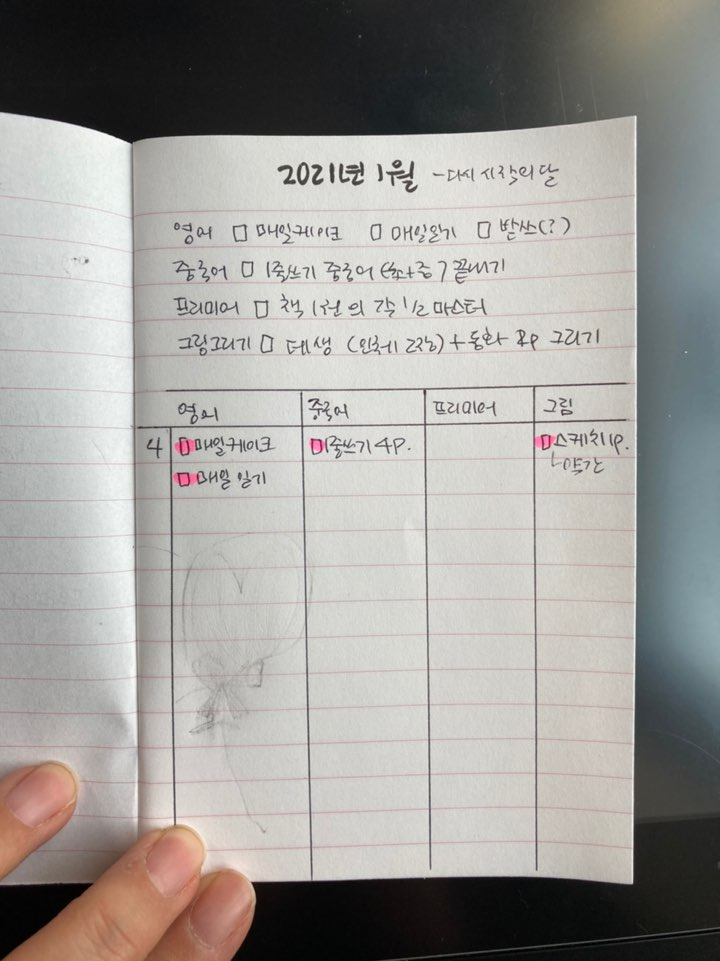 2021년 1월 - 다시 시작의 달
영어 □ 매일케이크 □ 매일일기 □ 받쓰(?)
중국어 □ 1줄쓰기 중국어 (초+중) 끝내기
프리미어 □ 책 1권의 각 1/2 마스터
그림그리기 □ 데생 (인체 2장) + 동화 2p 그리기
영어 중국어 프리미어 그림
4 □ 매일케이크 □ 1줄쓰기 4P. □ 스케치 1p.
□ 매일 일기 └약간